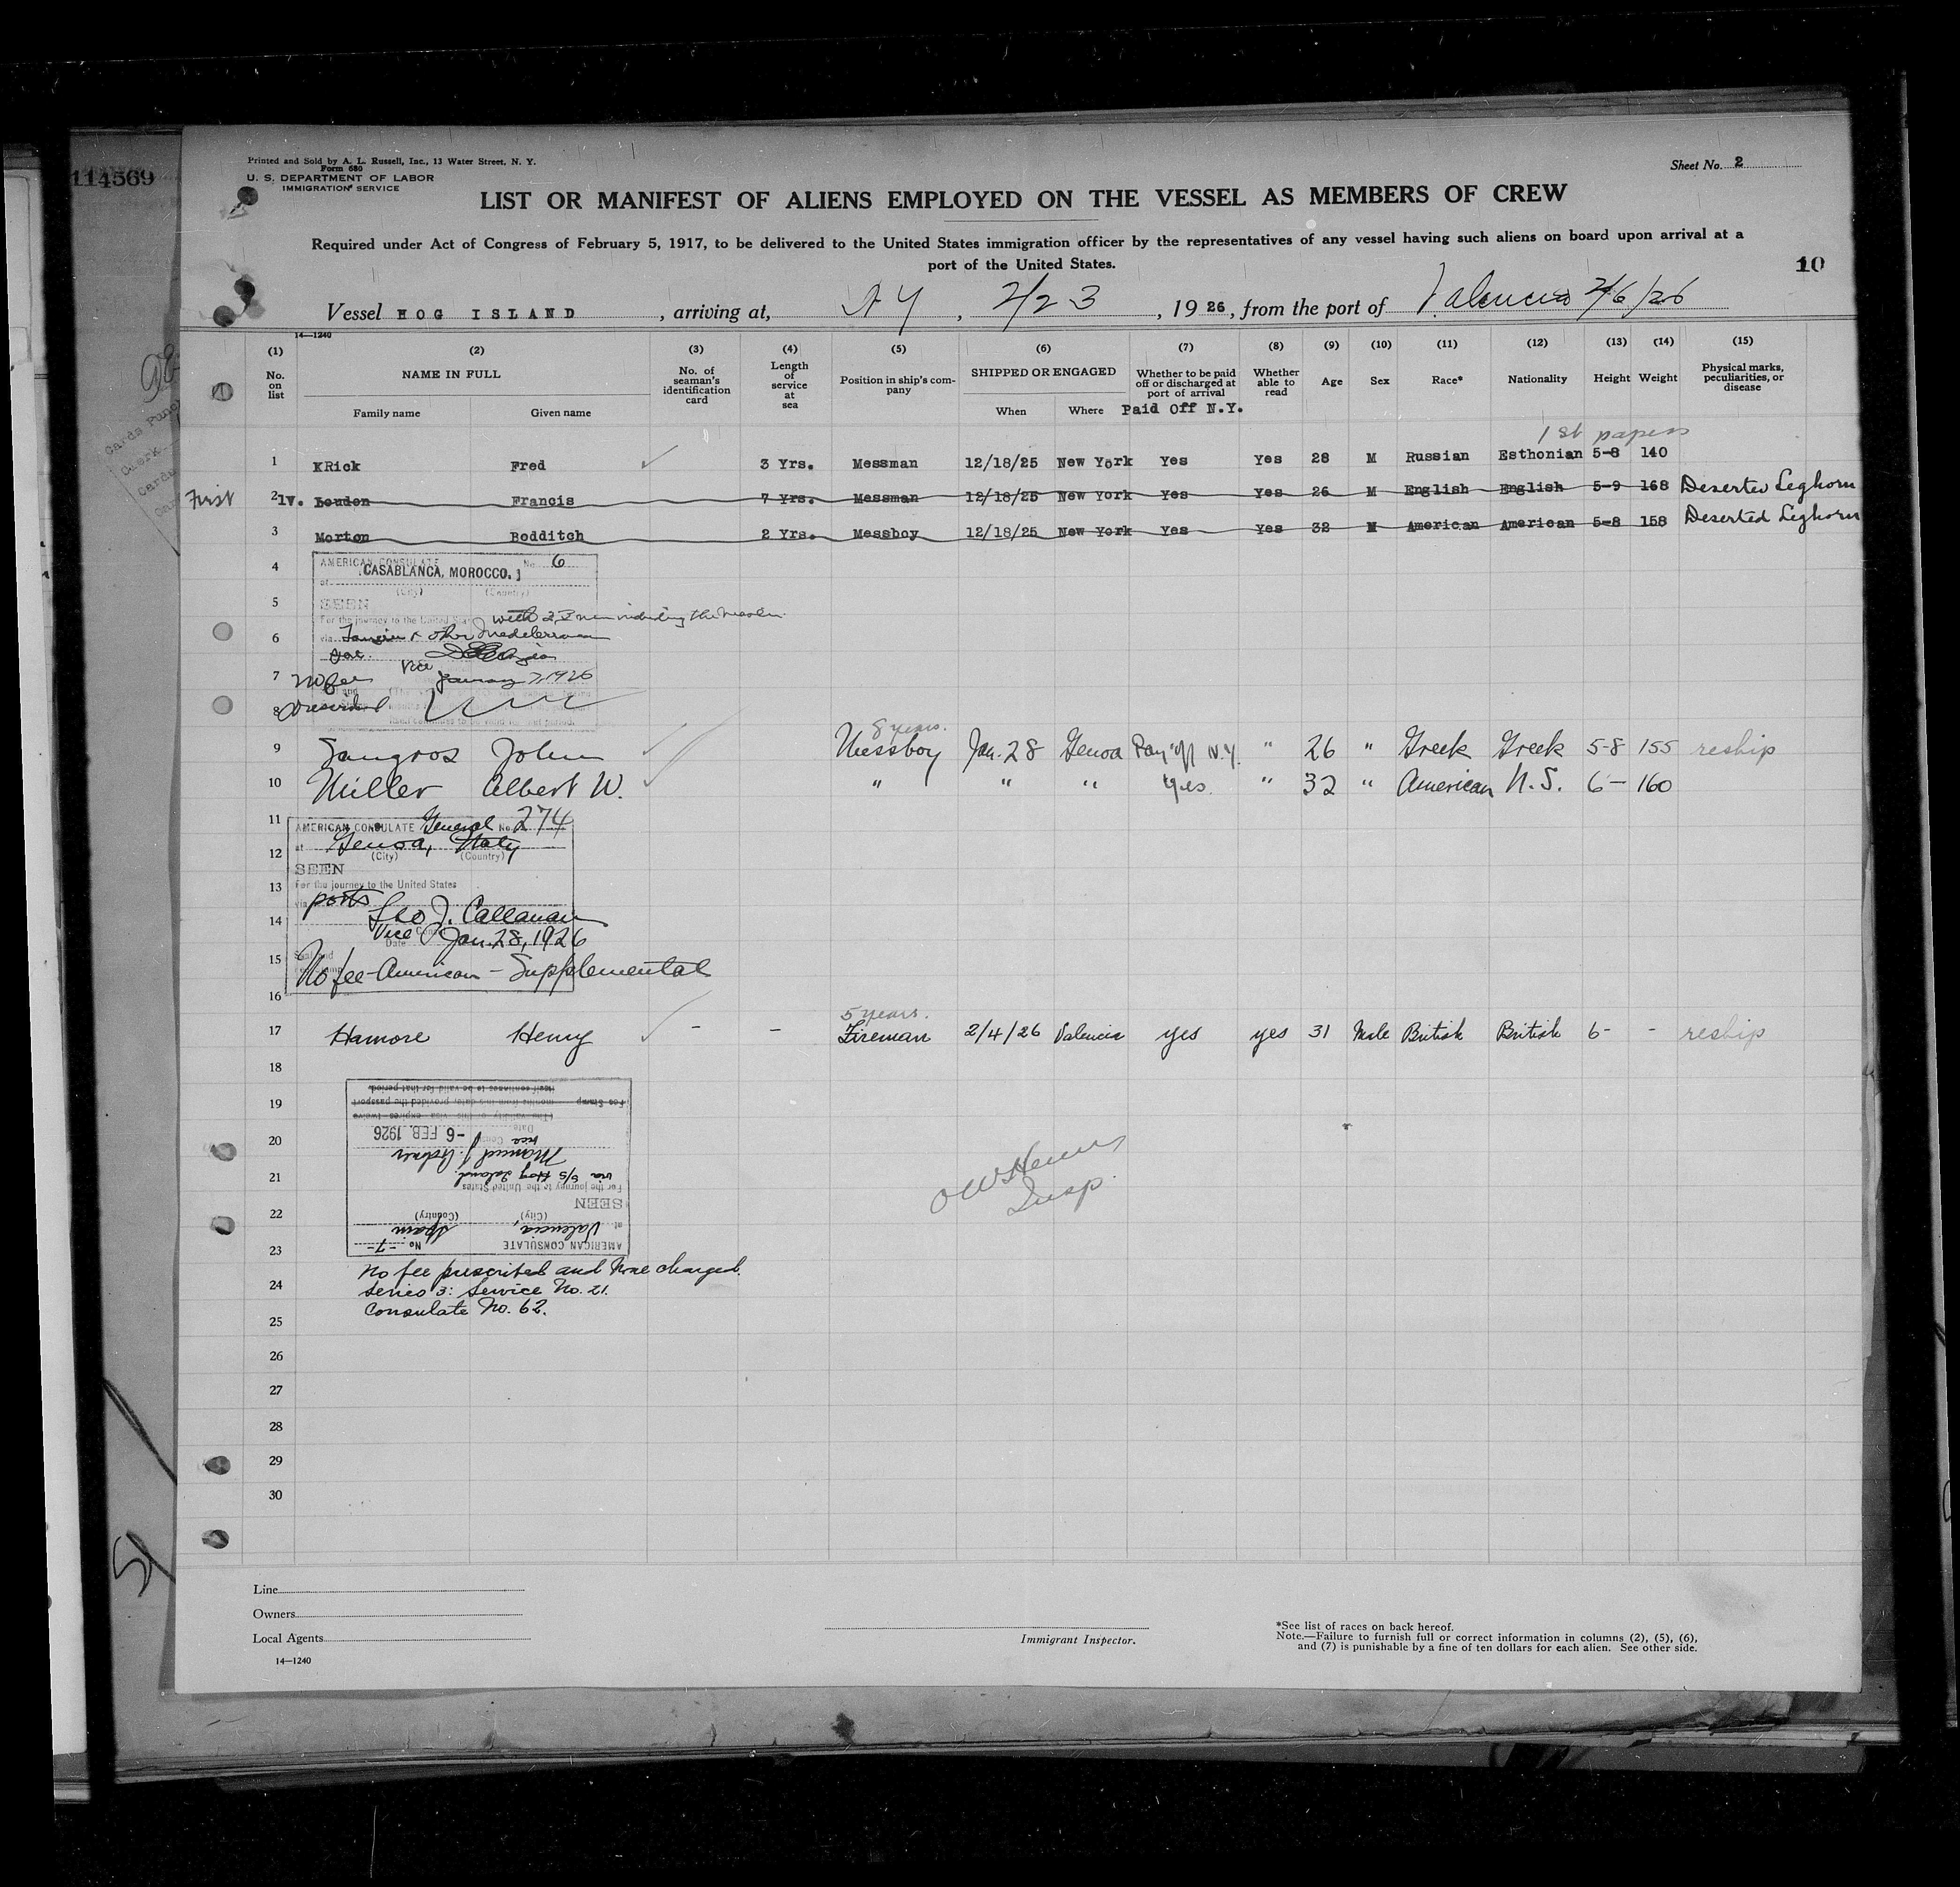 114569
Printed and Sold by A. L. Russell, Inc., 13 Water Street, N. Y.
Form 680
U. S. DEPARTMENT OF LABOR
IMMIGRATION SERVICE
Sheet No. 2
LIST OR MANIFEST OF ALIENS EMPLOYED ON THE VESSEL AS MEMBERS OF CREW
Required under Act of Congress of February 5, 1917, to be delivered to the United States immigration officer by the representatives of any vessel having such aliens on board upon arrival at a
port of the United States.
10
Vessel HOG ISLAND, arriving at, N Y, 2/23, 1926, from the port of Valencia 2/6/26
14—1240
(1) (2) (3) (4) (5) (6) (7) (8) (9) (10) (11) (12) (13) (14) (15)
No. on list NAME IN FULL Family name Given name No. of seaman's identification card Length of service at sea Position in ship's company SHIPPED OR ENGAGED When Where Whether to be paid off or discharged at port of arrival Whether able to read Age Sex Race* Nationality Height Weight Physical marks, peculiarities, or disease
Paid Off N.Y.
1st papers
1 KRick Fred 3 Yrs. Messman 12/18/25 New York Yes Yes 28 M Russian Esthonian 5-8 140
First 2 1v. Loudon Francis 7 Yrs. Messman 12/18/25 New York Yes Yes 26 M English English 5-9 168 Deserted Leghorn
3 Morton Bodditch 2 Yrs. Messboy 12/18/25 New York Yes Yes 32 M American American 5-8 158 Deserted Leghorn
4 AMERICAN CONSULATE No. 6
CASABLANCA, MOROCCO.
at (City) (Country)
5 SEEN
For the journey to the United States with 23 men including the master
6 via Tangier & other Mediterranean
Vice
7 No fee January 7, 1926
8 prescribed
8 years.
9 Sangros John Messboy Jan. 28 Genoa Pay off N.Y. " 26 " Greek Greek 5-8 155 reship
10 Miller Albert W. " " " Yes. " 32 " American U.S. 6- 160
11 AMERICAN CONSULATE General No. 274
at Genoa, Italy
12 (City) (Country)
SEEN
13 For the journey to the United States
via ports
14 Geo J. Callanan
Vice Consul
Date Jan. 28, 1926
15 No fee-American - Supplemental
16
5 years.
17 Hamore Henry - - Fireman 2/4/26 Valencia yes yes 31 Male British British 6- - reship
18
19
20
21
22
23
AMERICAN CONSULATE No. -7-
at Valencia, Spain
(City) (Country)
SEEN
For the journey to the United States
via S/S Hog Island.
Manuel J.
vice Consul
Date -6 FEB. 1926
(The validity of this visa expires twelve
Fee Stamp months from this date, provided the passport
itself continues to be valid for that period.
Insp.
No fee prescribed and None charged.
24 Series 3: Service No. 21.
Consulate No. 62.
25
26
27
28
29
30
Line
Owners
Local Agents
14—1240
Immigrant Inspector.
*See list of races on back hereof.
Note.—Failure to furnish full or correct information in columns (2), (5), (6),
and (7) is punishable by a fine of ten dollars for each alien. See other side.